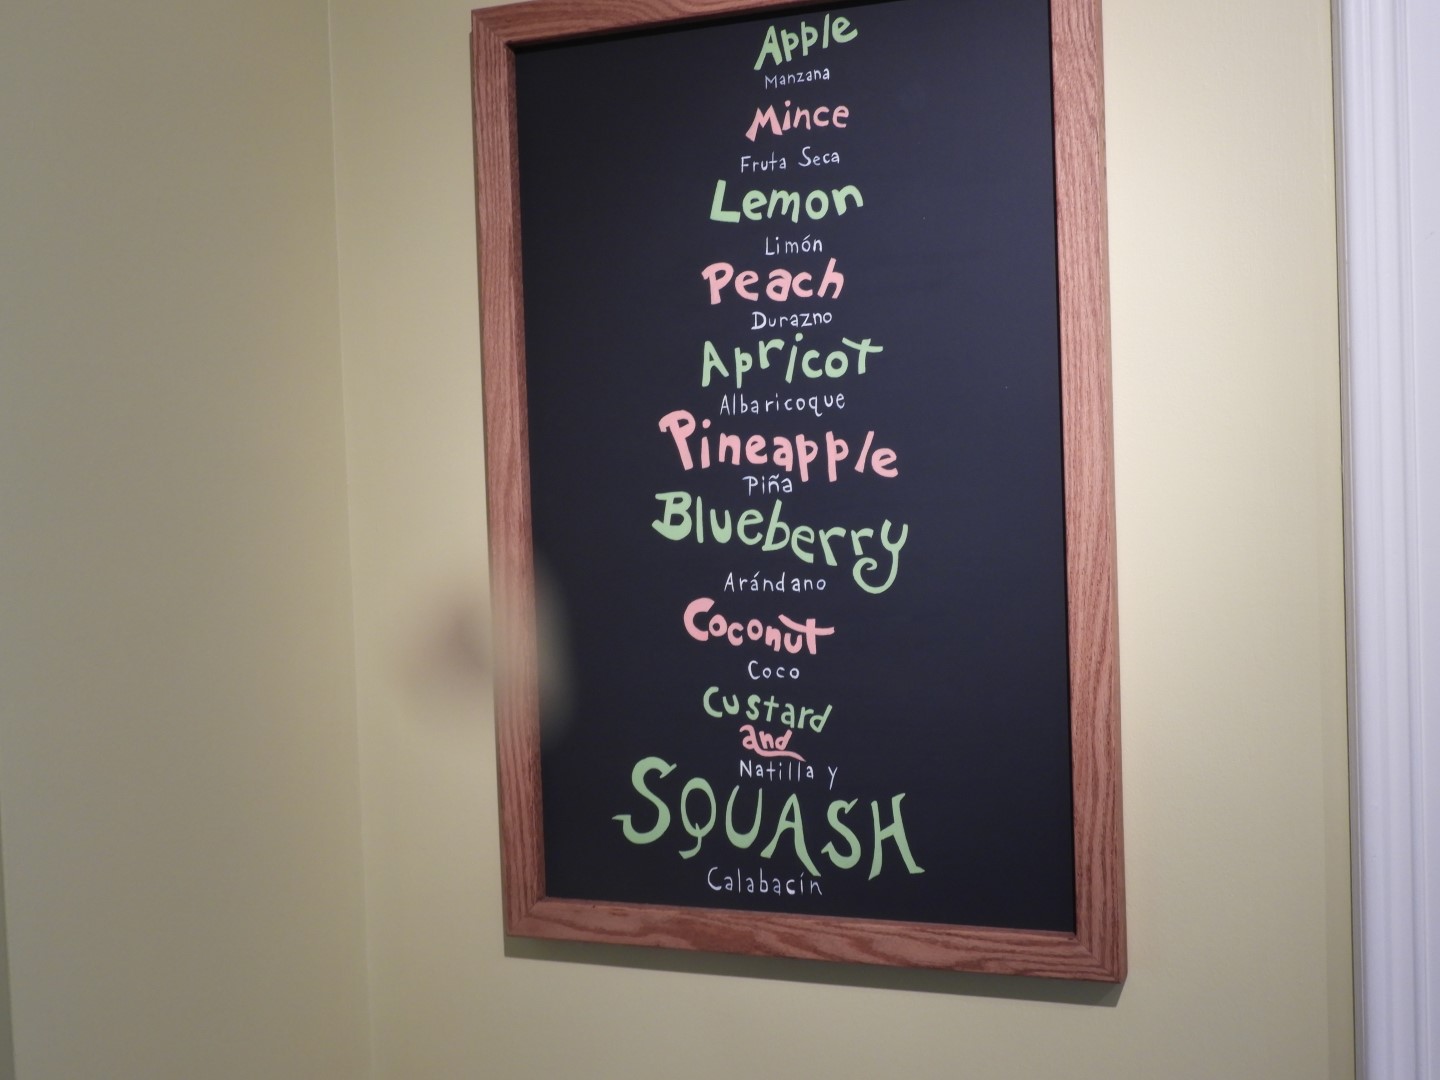 Apple
Manzana
Mince
Fruta Seca
Lemon
Limón
Peach
Durazno
Apricot
Albaricoque
Pineapple
Piña
Blueberry
Arándano
Coconut
Coco
Custard
and
Natilla y
SQUASH
Calabacín